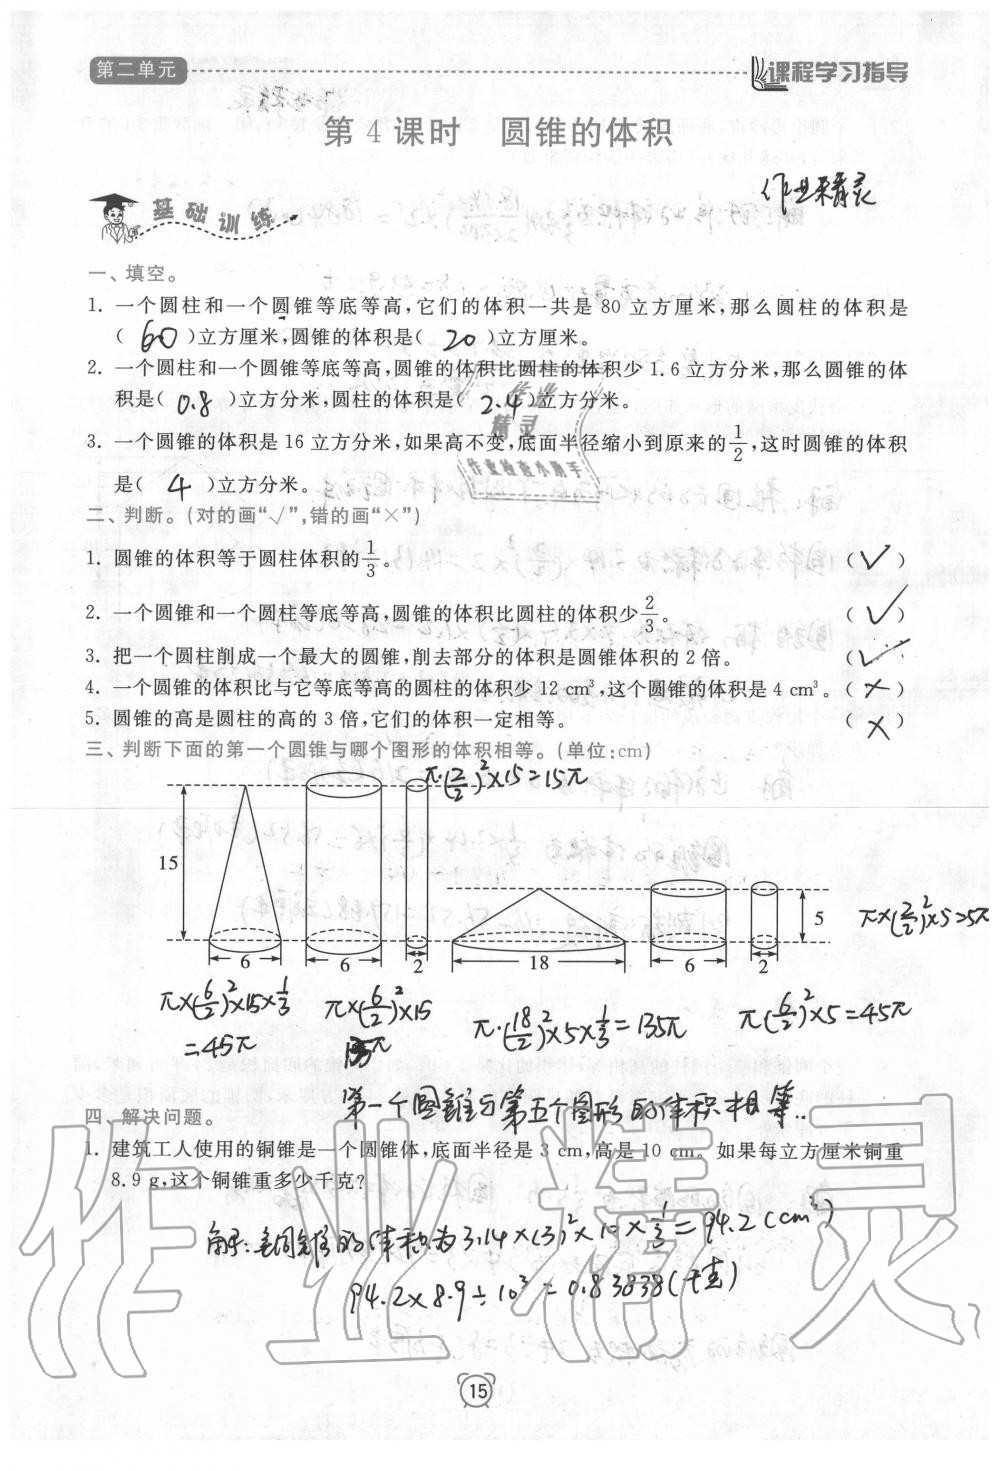 第二单元
课程学习指导
第 4 课时 圆锥的体积
作业精灵
基础训练
一、填空。
1. 一个圆柱和一个圆锥等底等高,它们的体积一共是 80 立方厘米,那么圆柱的体积是
( 60 )立方厘米,圆锥的体积是( 20 )立方厘米。
2. 一个圆柱和一个圆锥等底等高,圆锥的体积比圆柱的体积少 1.6 立方分米,那么圆锥的体
积是( 0.8 )立方分米,圆柱的体积是( 2.4 )立方分米。
作业
精灵
3. 一个圆锥的体积是 16 立方分米,如果高不变,底面半径缩小到原来的1/2,这时圆锥的体积
作业检查小助手
是( 4 )立方分米。
二、判断。(对的画“√”,错的画“×”)
1. 圆锥的体积等于圆柱体积的1/3。 ( √ )
2. 一个圆锥和一个圆柱等底等高,圆锥的体积比圆柱的体积少2/3。 ( √ )
3. 把一个圆柱削成一个最大的圆锥,削去部分的体积是圆锥体积的 2 倍。 ( √ )
4. 一个圆锥的体积比与它等底等高的圆柱的体积少 12 cm³,这个圆锥的体积是 4 cm³。( × )
5. 圆锥的高是圆柱的高的 3 倍,它们的体积一定相等。 ( × )
三、判断下面的第一个圆锥与哪个图形的体积相等。(单位:cm)
π·(2/2)²×15=15π
15
5
π×(2/2)²×5=5π
6 6 2 18 6 2
π×(6/2)²×15×1/3
=45π
π×(6/2)²×15
π·(18/2)²×5×1/3=135π
π(6/2)²×5=45π
第一个圆锥与第五个图形的体积相等..
四、解决问题。
1. 建筑工人使用的铜锥是一个圆锥体,底面半径是 3 cm,高是 10 cm。如果每立方厘米铜重
8.9 g,这个铜锥重多少千克?
解:铜锥的体积为3.14×(3)²×10×1/3=94.2(cm³)
94.2×8.9÷10³=0.83838(千克)
作业精灵
15